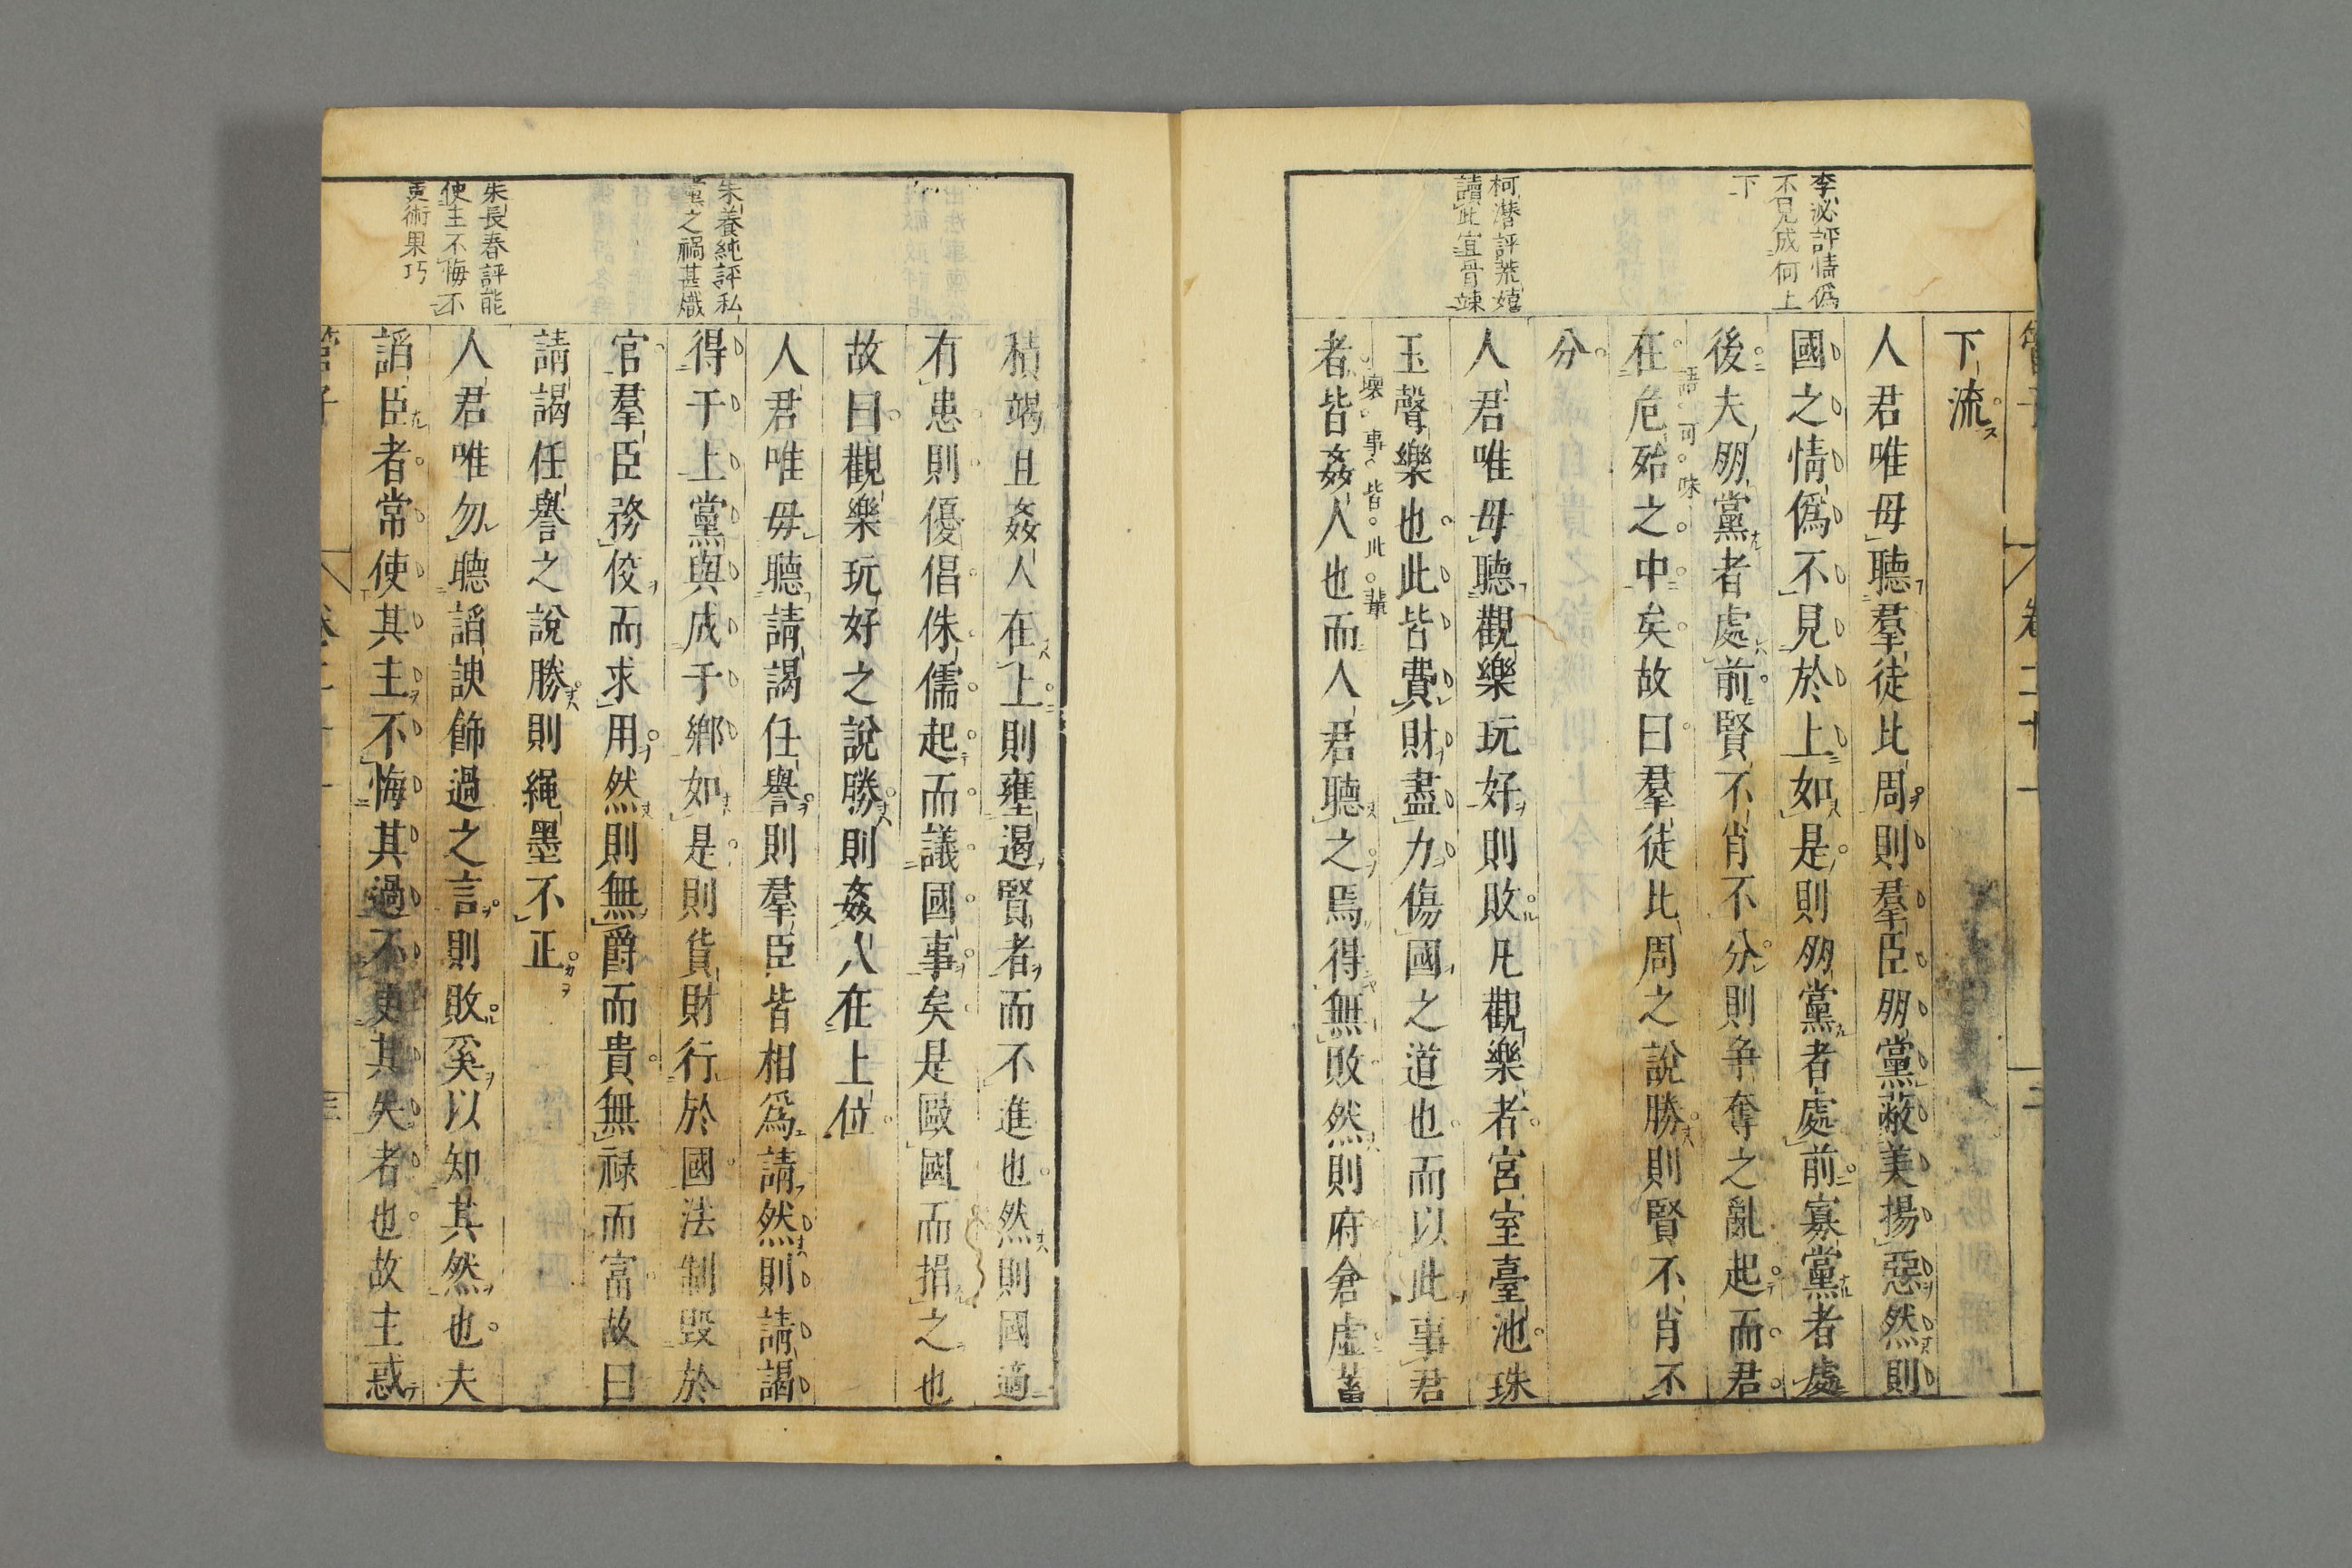 李泌評情僞
不見成何上
下
柯潛評荒嬉
讀此宜骨竦
下流
人君唯毋聽羣徒比周則羣臣朋黨蔽美揚惡然則
國之情僞不見於上如是則朋黨者處前寡黨者處
後夫朋黨者處前賢不肖不分則爭奪之亂起而君
語可味
在危殆之中矣故曰羣徒比周之說勝則賢不肖不
分
人君唯毋聽觀樂玩好則敗凡觀樂者宮室臺池珠
玉聲樂也此皆費財盡力傷國之道也而以此事君
壞事皆此輩
者皆姦人也而人君聽之焉得無敗然則府倉虛蓄
朱養純評私
黨之禍甚熾
朱長春評能
使主不悔不
更術果巧
積竭且姦人在上則壅遏賢者而不進也然則國適
有患則優倡侏儒起而議國事矣是敺國而捐之也
故曰觀樂玩好之說勝則姦人在上位
人君唯毋聽請謁任譽則羣臣皆相爲請然則請謁
得于上黨與成于鄉如是則貨財行於國法制毀於
官羣臣務佼而求用然則無爵而貴無祿而富故曰
請謁任譽之說勝則繩墨不正
人君唯勿聽謟諛飾過之言則敗奚以知其然也夫
謟臣者常使其主不悔其過不更其失者也故主惑